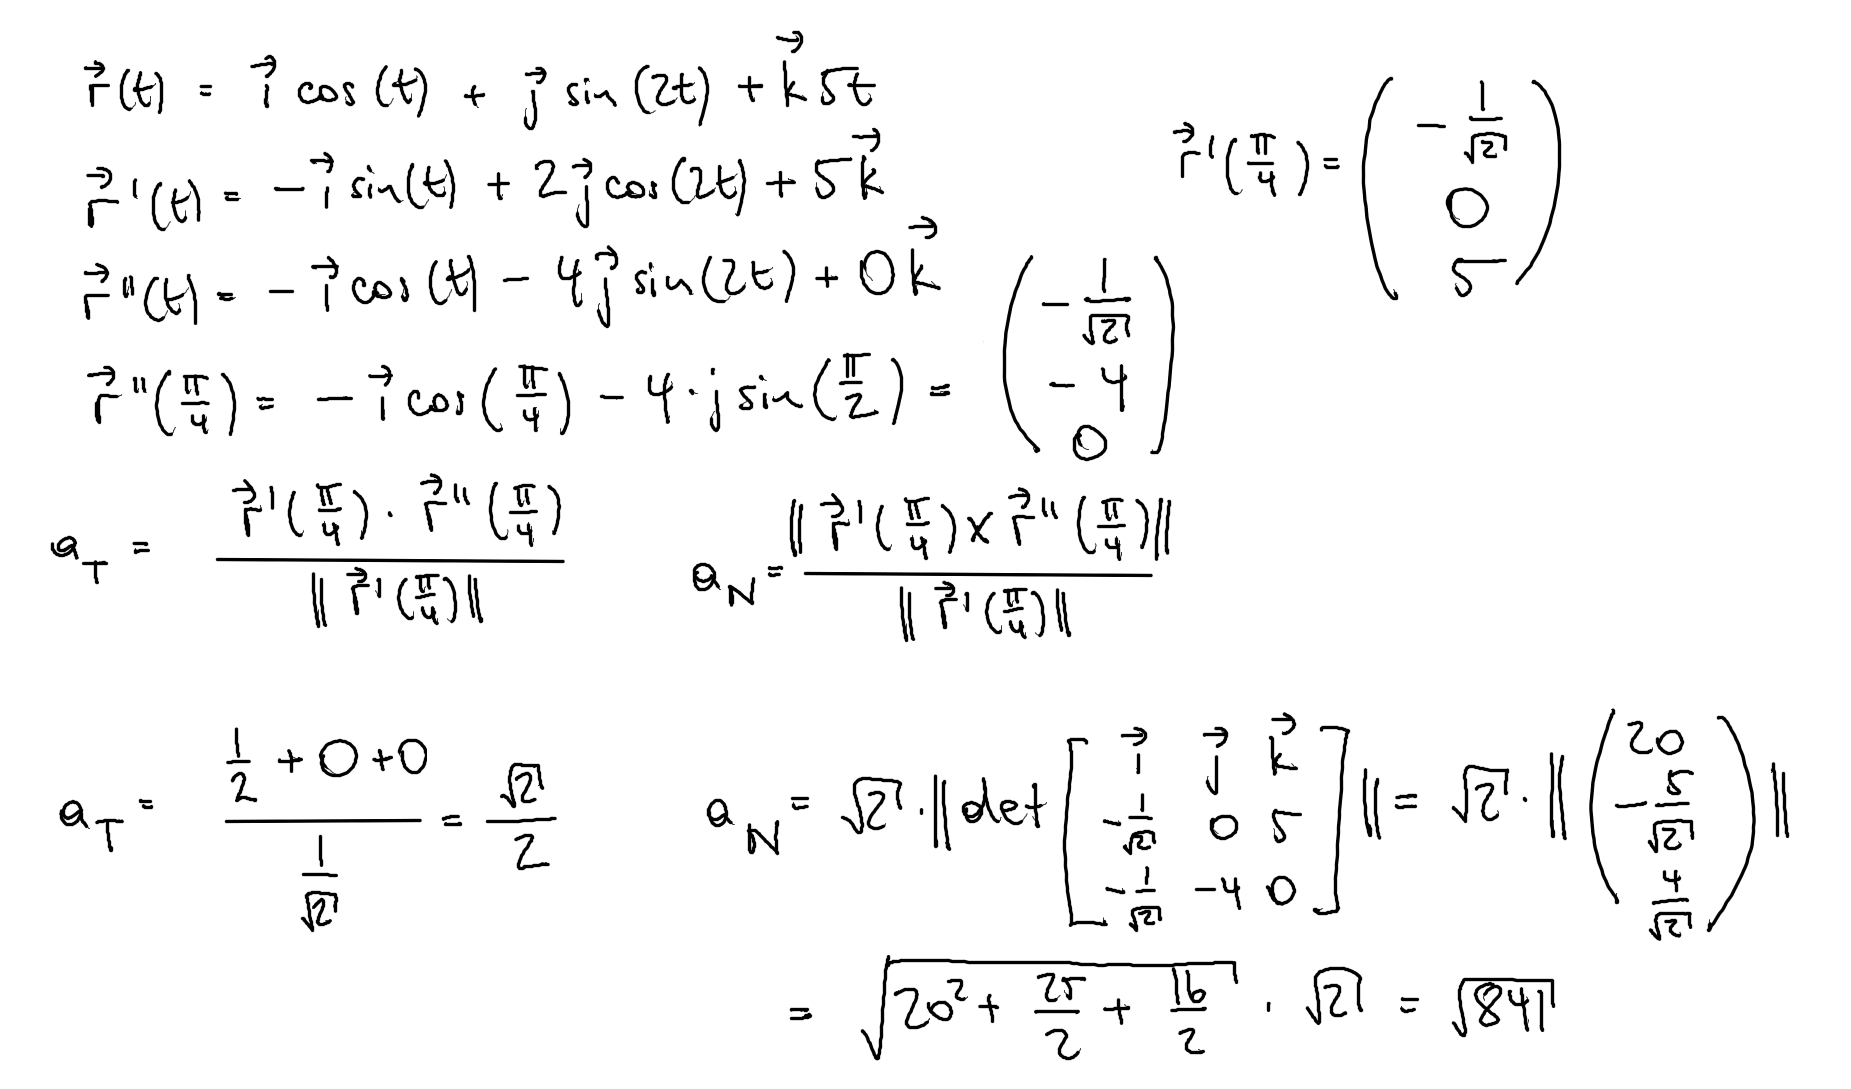 r⃗(t) = i⃗ cos(t) + j⃗ sin(2t) + k⃗ 5t
r⃗'(t) = -i⃗ sin(t) + 2j⃗ cos(2t) + 5k⃗
r⃗'(π/4) = (-1/√2, 0, 5)
r⃗''(t) = -i⃗ cos(t) - 4j⃗ sin(2t) + 0k⃗
r⃗''(π/4) = -i⃗ cos(π/4) - 4·j sin(π/2) = (-1/√2, -4, 0)
a_T = (r⃗'(π/4) · r⃗''(π/4)) / ‖r⃗'(π/4)‖
a_N = ‖r⃗'(π/4) × r⃗''(π/4)‖ / ‖r⃗'(π/4)‖
a_T = (1/2 + 0 + 0) / (1/√2) = √2/2
a_N = √2 · ‖det [i⃗ j⃗ k⃗; -1/√2 0 5; -1/√2 -4 0]‖ = √2 · ‖(20, -5/√2, 4/√2)‖
= √(20² + 25/2 + 16/2) · √2 = √841